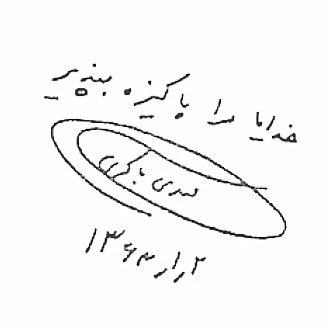 خدایا مرا پاکیزه بپذیر
مهدی باکری
۱۳۶۳/۱/۲